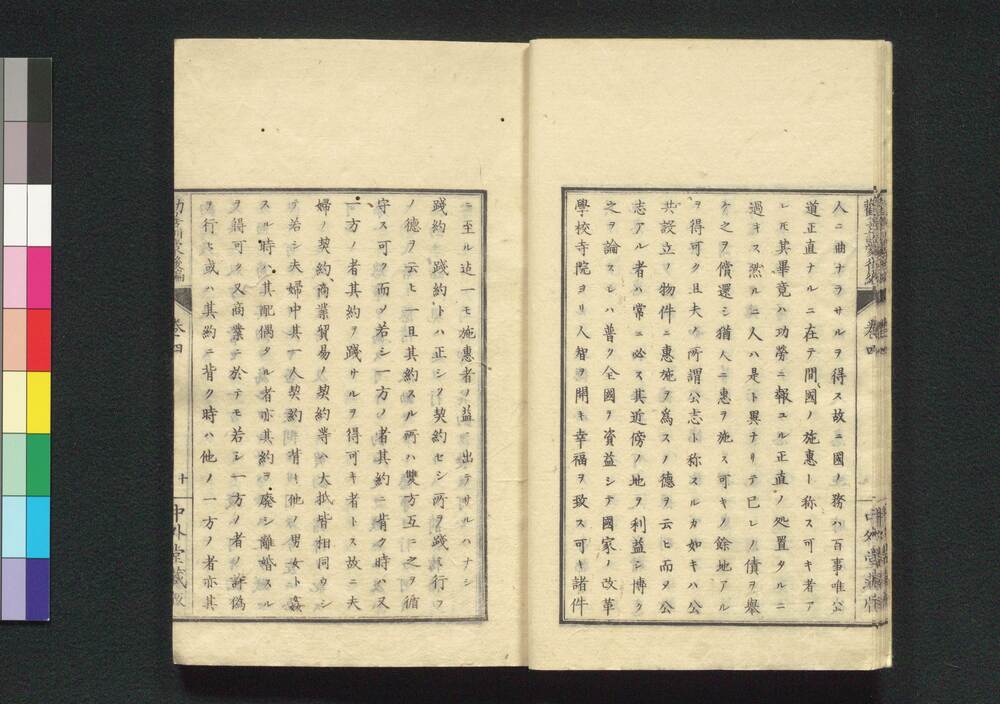 人ニ曲ナラサルヲ得ス故ニ國ノ務ハ百事唯公
道正直ナルニ在テ間〻國ノ施惠ト称ス可キ者ア
レ𪜈其畢竟ハ功勞ニ報ユル正直ノ処置タルニ
過キス然ルニ人ハ是ト異ナリテ已レノ債ヲ舉
ケ之ヲ償還シ猶人ニ惠ヲ施ス可キノ餘地アル
ヲ得可ク且夫ノ所謂公志ト称スルカ如キハ公
共設立ノ物件ニ惠施ヲ爲スノ德ヲ云ヒ而ヲ公
志アル者ハ常ニ必ス其近傍ノ地ヲ利益シ博ク
之ヲ論スレハ普ク全國ヲ資益シテ國家ノ改革
學校寺院ヨリ人智ヲ開キ幸福ヲ致ス可キ諸件
ニ至ル迠一モ施惠者ノ益ニ出テサルハナシ
踐約 踐約トハ正シク契約セシ所ヲ踐ミ行フ
ノ德ヲ云ヒ一旦其約スル所ハ雙方互ニ之ヲ循
守ス可ク而ノ若シ一方ノ者其約ニ背ク時ハ又
一方ノ者其約ヲ踐サルヲ得可キ者トス故ニ夫
婦ノ契約商業貿易ノ契約等ハ大抵皆相同ウシ
テ若シ夫婦中其一人契約ニ背キ他ノ男女ト姦
スル時ハ其配偶タル者亦其約ヲ廢シ離婚スル
ヲ得可ク又商業ニ於テモ若シ一方ノ者ノ詐偽
ヲ行ヒ或ハ其約ニ背ク時ハ他ノ一方ノ者亦其
卷四
十
中外堂藏